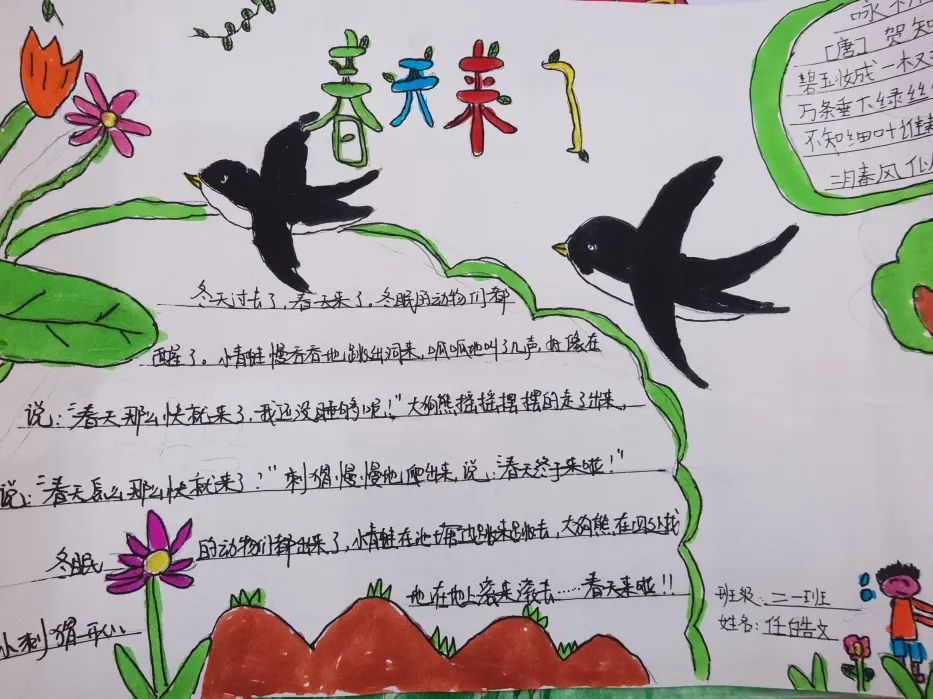 春天来了
[唐] 贺知
碧玉妆成一
万条垂下绿丝
不知细叶谁
二月春风似
冬天过去了,春天来了。冬眠的动物们都
醒了。小青蛙慢吞吞地跳出洞来,呱呱地叫了几声,好像在
说:“春天那么快就来了,我还没睡够呢!”大狗熊摇摇摆摆的走了出来,
说:“春天怎么那么快就来了?”刺猬慢慢地爬出来,说:“春天终于来啦!”
冬眠的动物们都出来了,小青蛙在池塘边跳来跳去,大狗熊在四处找
小刺猬开心地在地上滚来滚去……春天来啦!!
班级:二一班
姓名:任皓文